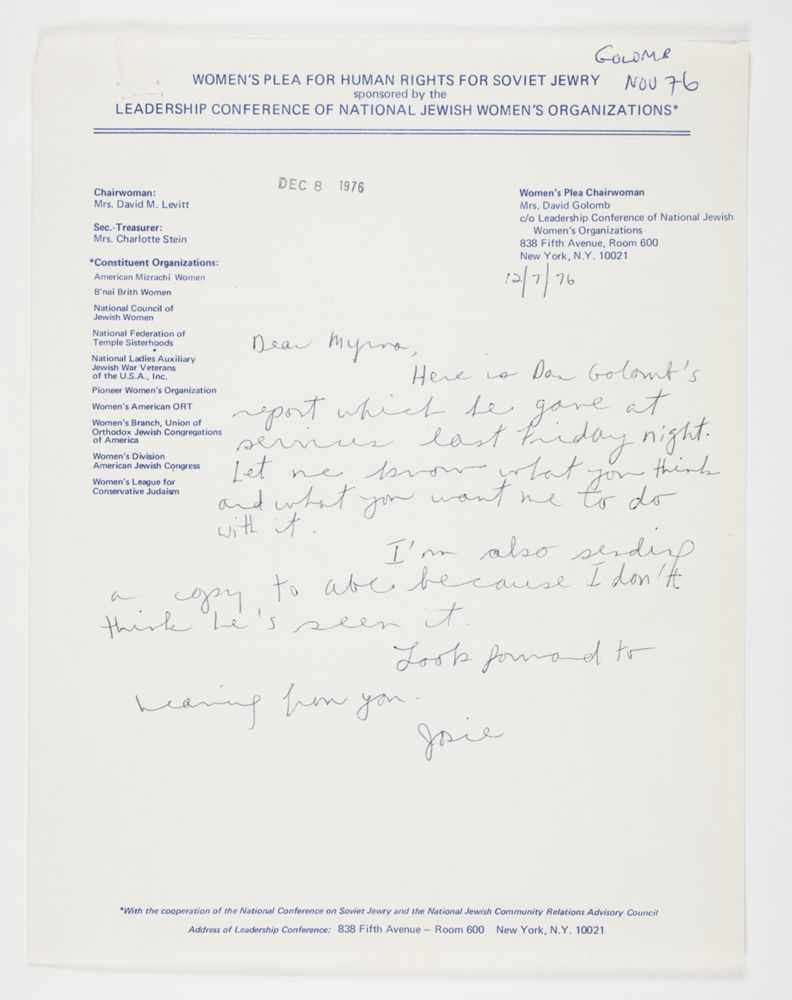 GOLOMB
NOV 76
WOMEN'S PLEA FOR HUMAN RIGHTS FOR SOVIET JEWRY
sponsored by the
LEADERSHIP CONFERENCE OF NATIONAL JEWISH WOMEN'S ORGANIZATIONS*
DEC 8 1976
Chairwoman:
Mrs. David M. Levitt
Sec.-Treasurer:
Mrs. Charlotte Stein
*Constituent Organizations:
American Mizrachi Women
B'nai Brith Women
National Council of
Jewish Women
National Federation of
Temple Sisterhoods
National Ladies Auxiliary
Jewish War Veterans
of the U.S.A., Inc.
Pioneer Women's Organization
Women's American ORT
Women's Branch, Union of
Orthodox Jewish Congregations
of America
Women's Division
American Jewish Congress
Women's League for
Conservative Judaism
Women's Plea Chairwoman
Mrs. David Golomb
c/o Leadership Conference of National Jewish
Women's Organizations
838 Fifth Avenue, Room 600
New York, N.Y. 10021
12/7/76
Dear Myrna,
Here is Dan Golomb's
report which he gave at
services last Friday night.
Let me know what you think
and what you want me to do
with it.
I'm also sending
a copy to Abe because I don't
think he's seen it.
Look forward to
hearing from you.
Josie
*With the cooperation of the National Conference on Soviet Jewry and the National Jewish Community Relations Advisory Council
Address of Leadership Conference: 838 Fifth Avenue – Room 600 New York, N.Y. 10021